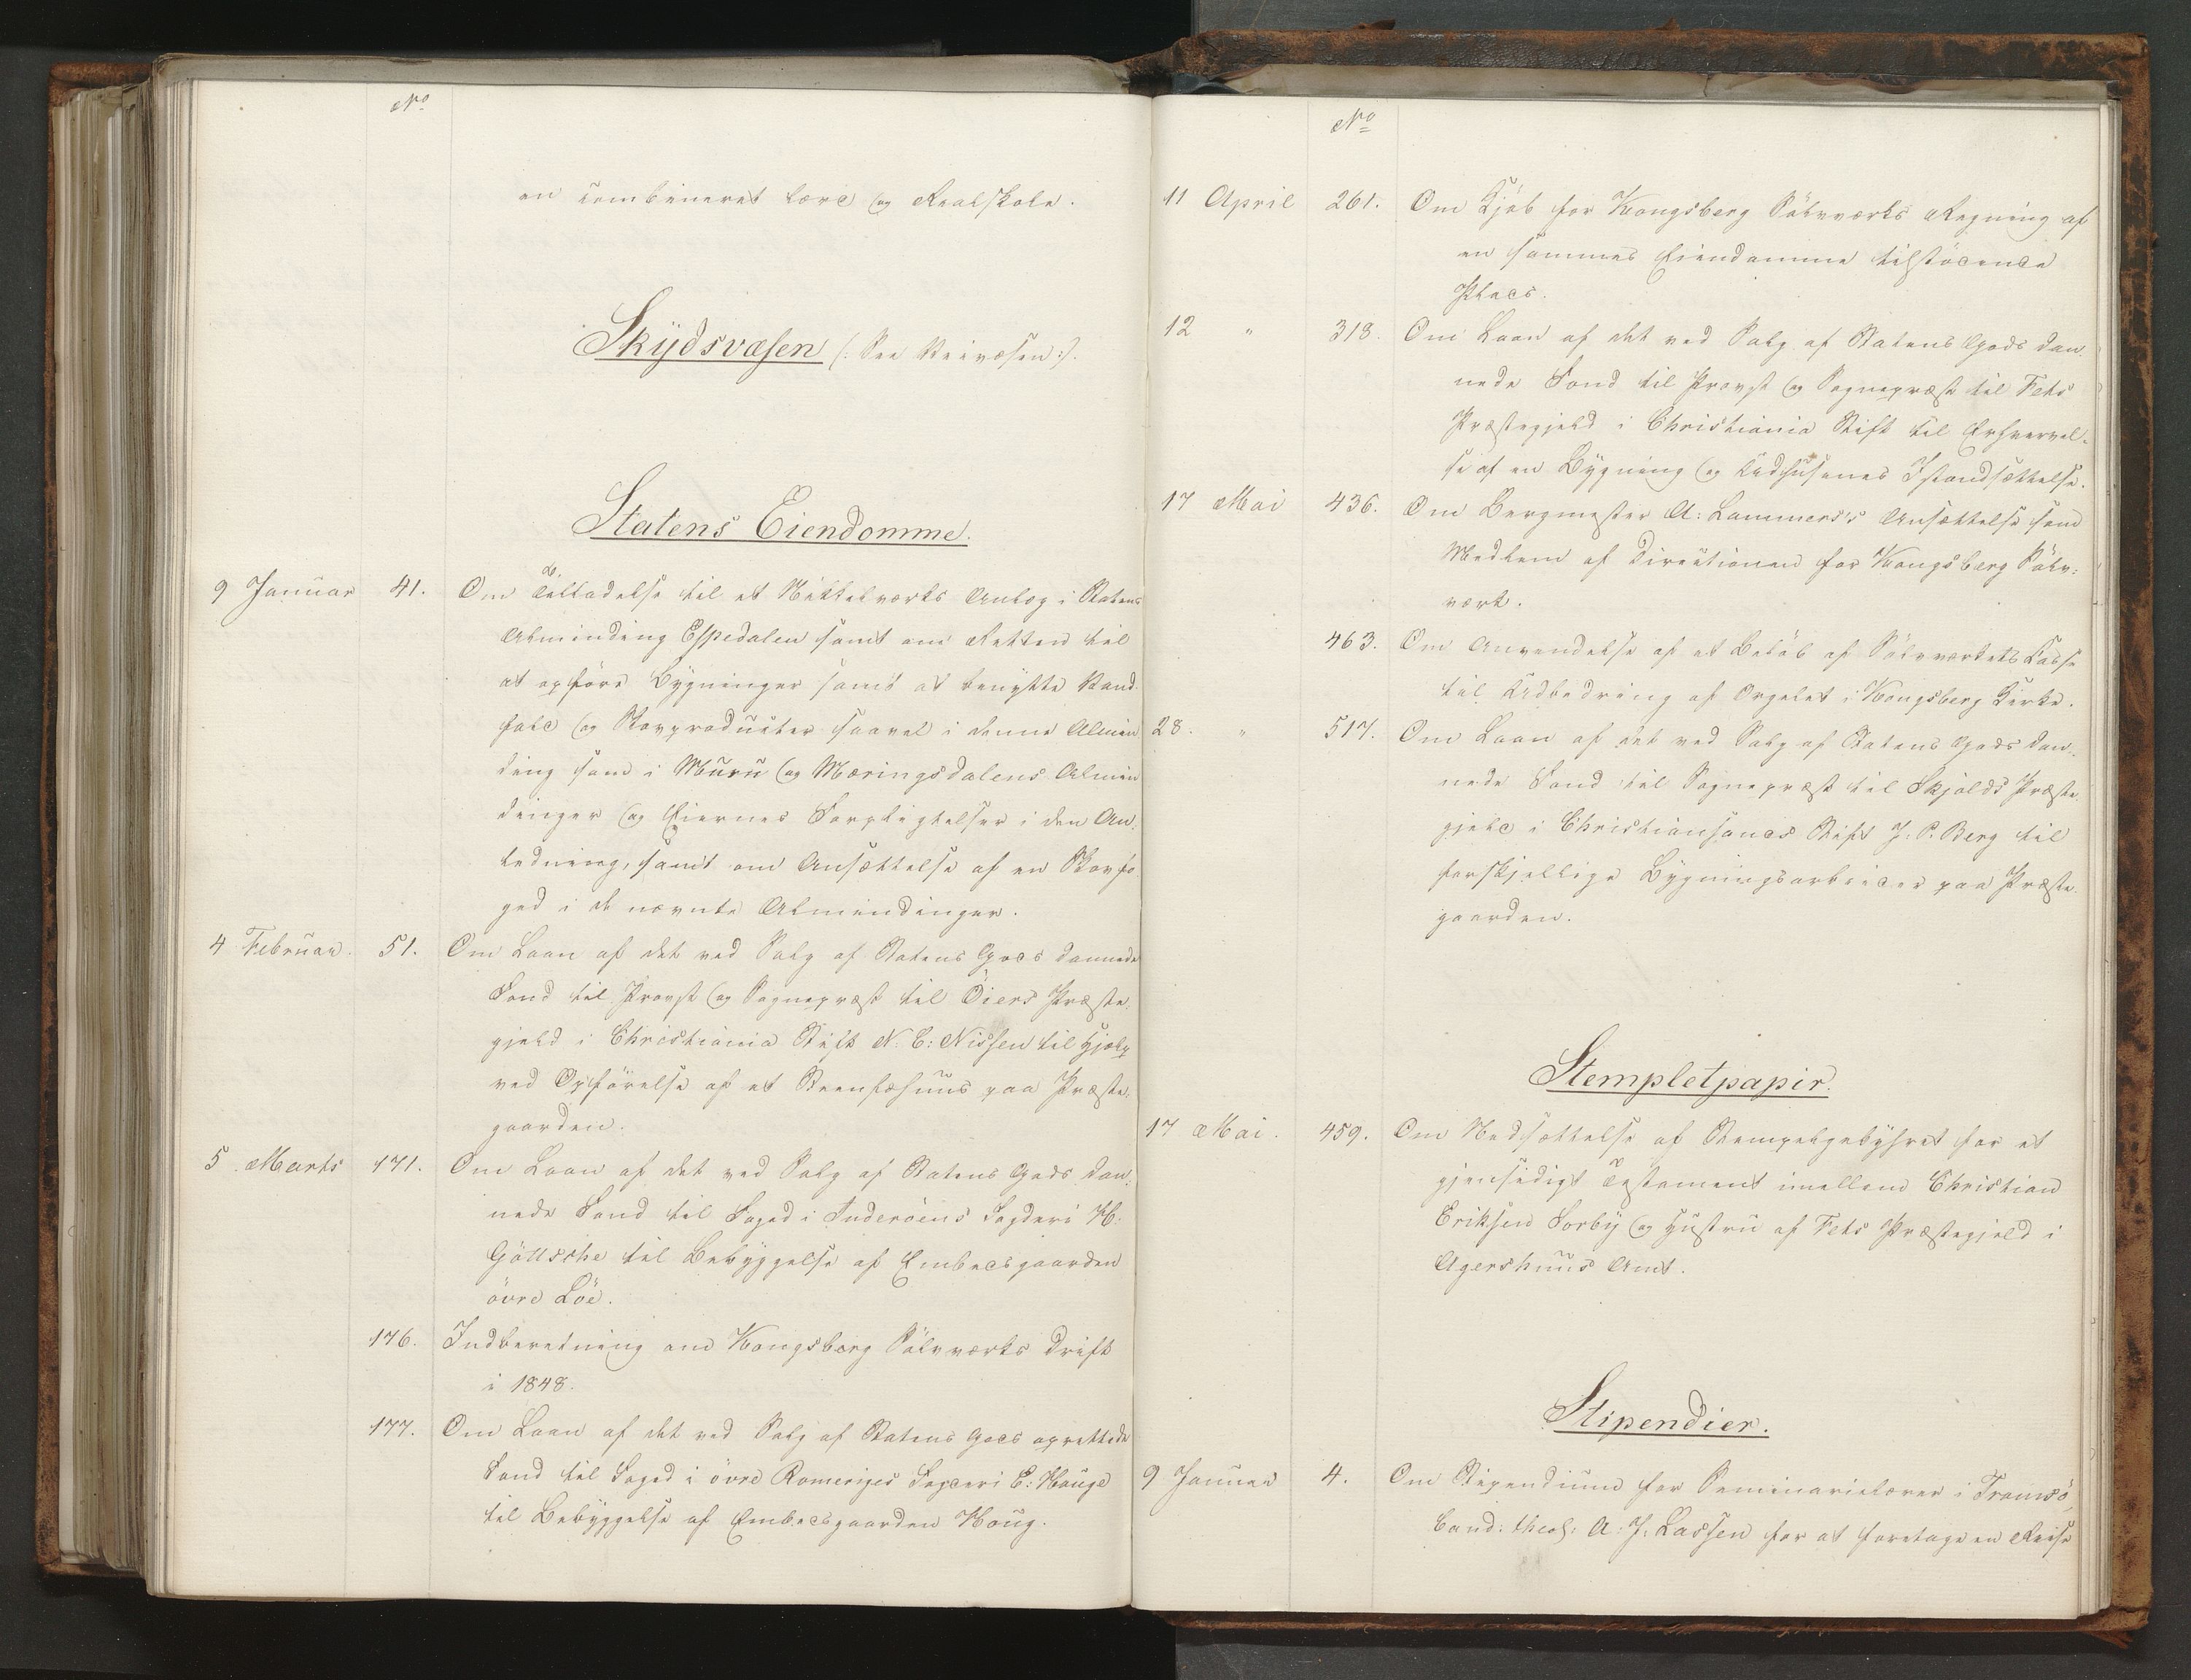 No
en combineret lærd og Realskole.
Skydsvæsen (: See Veivæsen :).
Statens Eiendomme.
9 Januar 41. Om Tilladelse til et Nikkelværks Anlæg i Statens
Alminding Espedalen samt om Retten til
at opføre Bygninger samt at benytte Vand-
fald og Skovproducter saavel i denne Almin
ding som i Muru og Mæringsdalens Almin
dinger og Eiernes Forpligtelser i den An-
ledning, samt om Ansættelse af en Skovfo
ged i de nævnte Almindinger.
4 Februar. 51. Om Laan af det ved Salg af Statens Gods dannede
Fond til Provst og Sognepræst til Öiers Præste-
gjeld i Christiania Stift N. C: Nissen til Hjælp
ved Opförelse af et Steenfæhuus paa Præste-
gaarden.
5 Marts 171. Om Laan af det ved Salg af Statens Gods dan-
nede Fond til Foged i Inderöens Fogderi H:
Göttsche til Bebyggelse af Embedsgaarden
övre Löe.
176. Indberetning om Kongsberg Sölvværks Drift
i 1848.
177. Om Laan af det ved Salg af Statens Gods oprettede
Fond til Foged i övre Romeriges Fogderi E: Hauge
til Bebyggelse af Embedsgaarden Houg.
No
11 April 261. Om Kjöb for Kongsberg Sölvværks Regning af
en sammes Eiendomme tilstödende
Plads.
12 " 313. Om Laan af det ved Salg af Statens Gods dan-
nede Fond til Provst og Sognepræst til Fets
Præstegjeld i Christiania Stift til Erhvervel-
se af en Bygning og Udhusenes Istandsættelse.
17 Mai 436. Om Bergmester A: Lammers's Ansættelse som
Medlem af Directionen for Kongsberg Sölv-
værk.
463. Om Anvendelse af et Belöb af Sölvværkets Casse
til Udbedring af Orgelet i Kongsberg Kirke.
28. " 517. Om Laan af det ved Salg af Statens Gods dan-
nede Fond til Sognepræst til Skjolds Præste-
gjeld i Christiansands Stift J: P. Berg til
forskjellige Bygningsarbeider paa Præste-
gaarden.
Stempletpapir.
17 Mai. 459. Om Nedsættelse af Stempelgebyhret for et
gjensidigt Testament imellem Christian
Eriksen Sorby og Hustru af Fets Præstegjeld i
Agershuus Amt.
Stipendier.
9 Januar 4. Om Stipendium for Seminarielærer i Tromsö,
Cand: theol: A: J: Lassen for at foretage en Reise